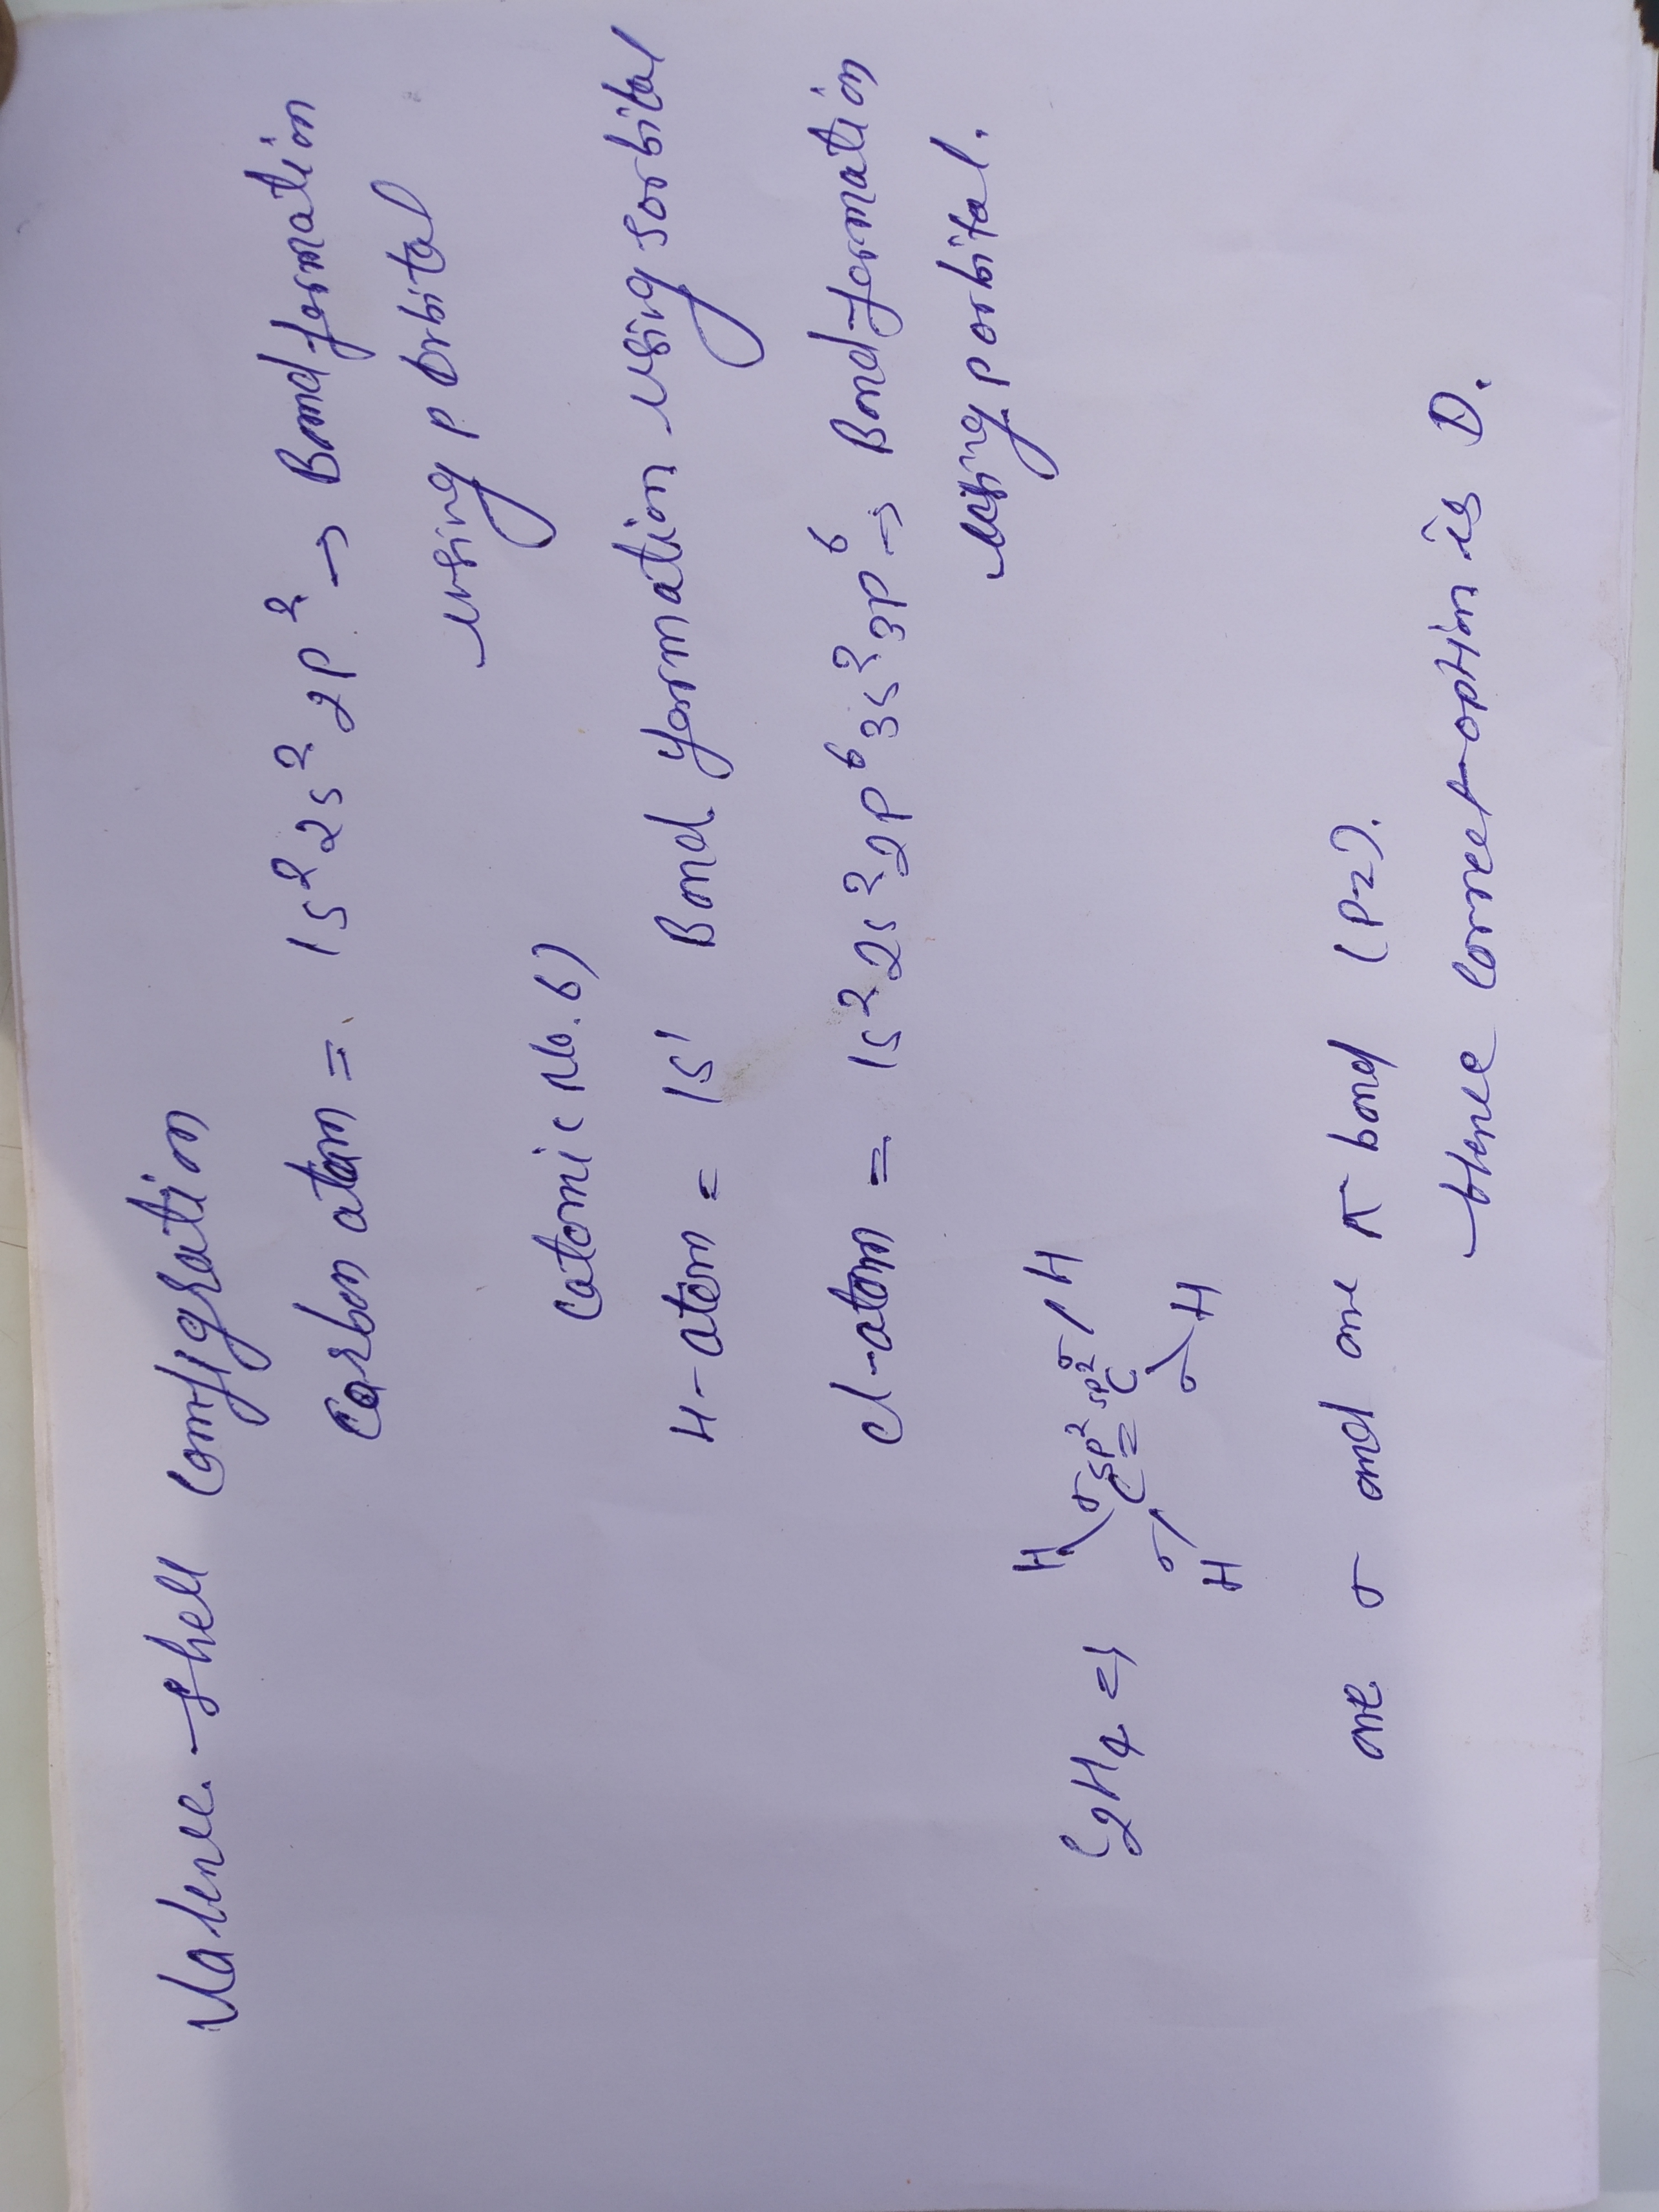 Valence shell Configration
Carbon atom = 1s² 2s² 2p² → Bond formation
using p orbital
(atomic No. 6)
H-atom = 1s¹ Bond formation using s orbital
Cl-atom = 1s² 2s² 2p⁶ 3s² 3p⁶ → Bond formation
using p orbital.
H H
σ sp² sp² σ
C₂H₄ ⇒ C = C
σ σ
H H
one σ and one π bond (Pz).
Hence correct option is D.